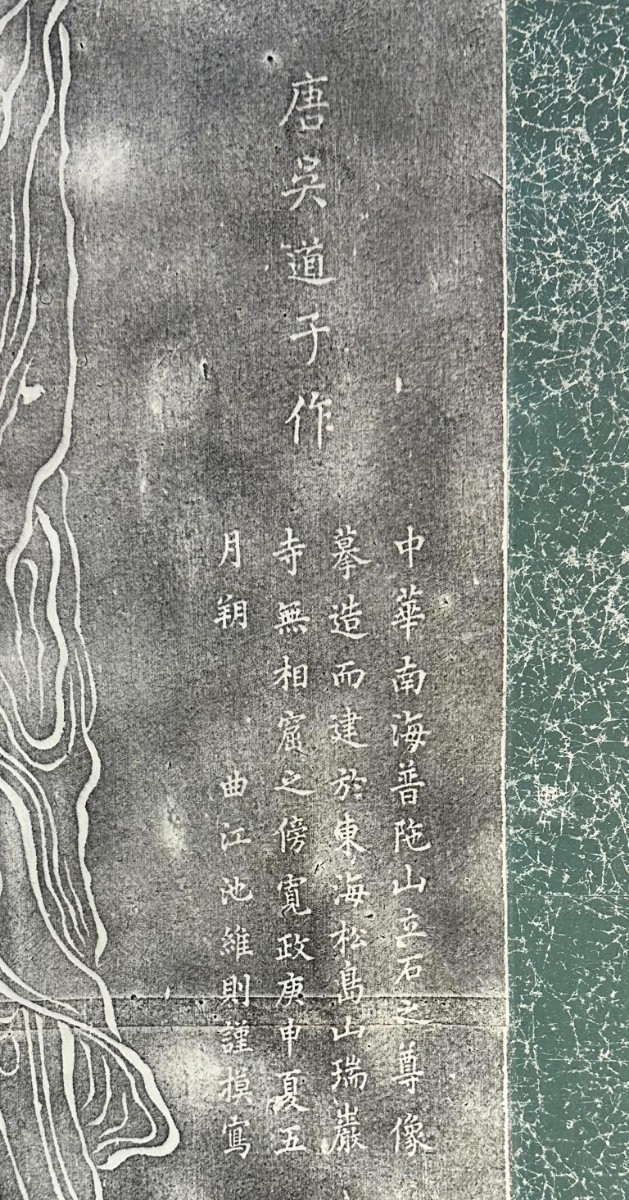 唐吳道子作
中華南海普陀山立石之尊像
摹造而建於東海松島山瑞巖
寺無相窟之傍寬政庚申夏五
月朔 曲江池維則謹摸寫